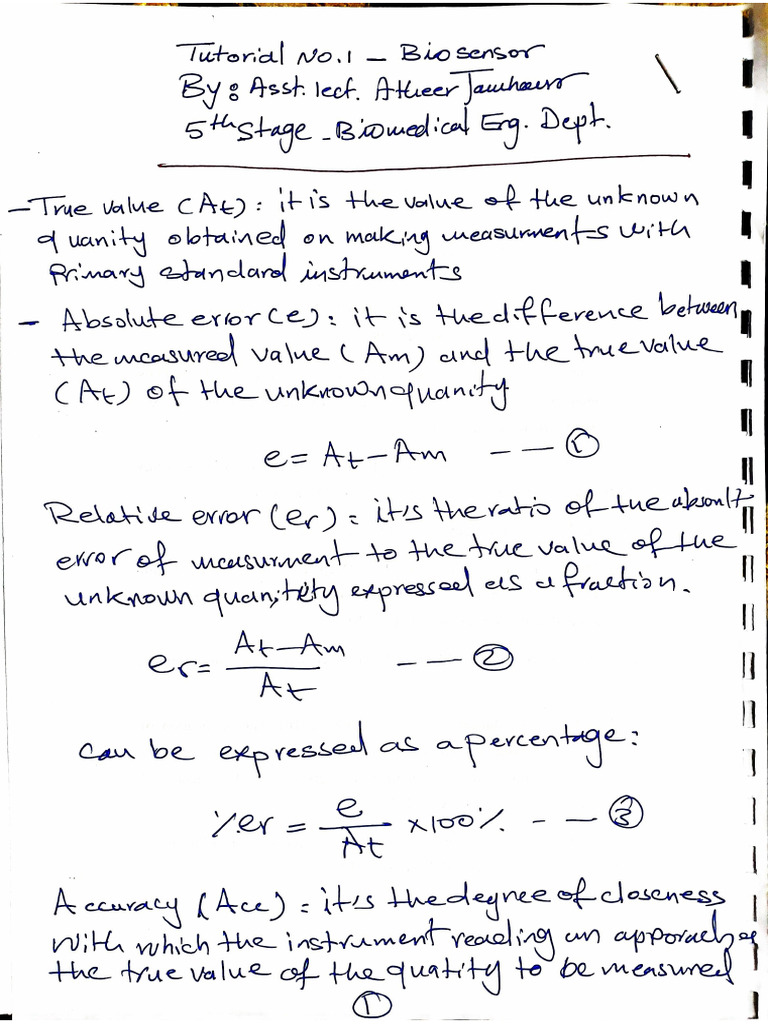 Tutorial No.1 — Biosensor
By: Asst. lect. Atheer
5th Stage - Biomedical Eng. Dept.
- True value (At): it is the value of the unknown
quanity obtained on making measurments with
Primary standard instruments
- Absolute error (e): it is the difference between
the measured value (Am) and the true value
(At) of the unknown quanity
e = At - Am -- ①
Relative error (er): it's the ratio of the absoult
error of measurment to the true value of the
unknown quantity expressed as a fraction.
er = At - Am / At -- ②
can be expressed as a percentage:
% er = e / At × 100% -- ③
Accuracy (Acc): it's the degree of closeness
with which the instrument reading an apporaches
the true value of the quatity to be measured
①